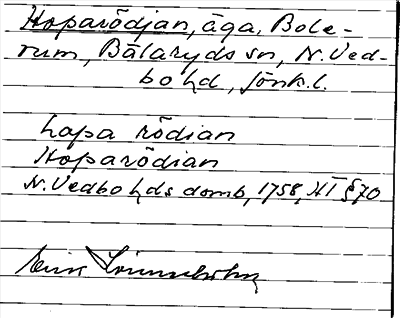 Hoparödjan, äga, Bole-
rum, Bälaryds sn, N. Ved-
bo hd, Jönk. l.
hopa rödian
Hoparödian
N. Vedbo hds domb, 1758, HT § 70